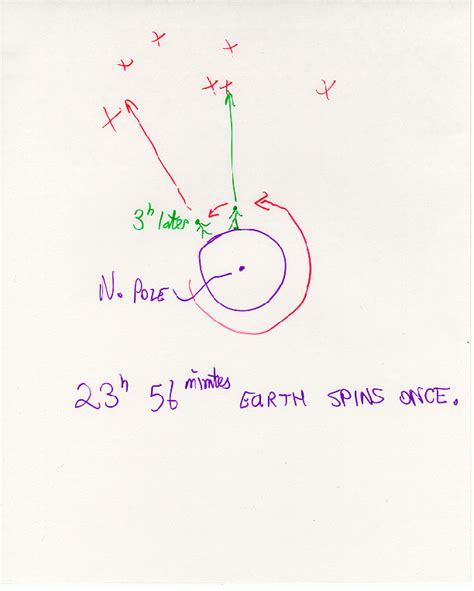 3ʰ later
N. POLE
23ʰ 56 minutes EARTH SPINS ONCE.